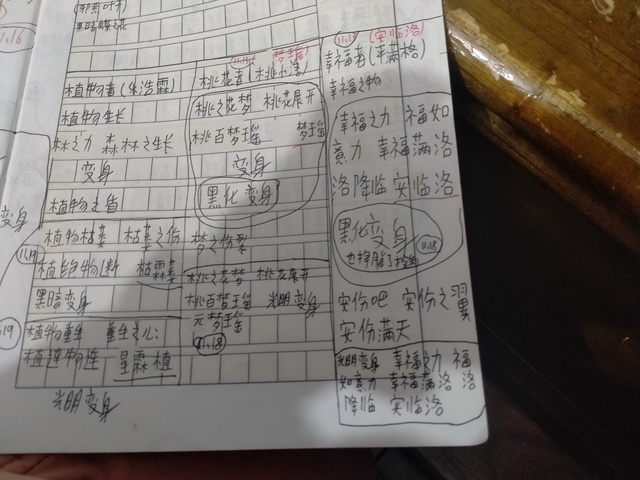 (邪哥叶)
黑暗蝶花
11.16
植物者(朱浩霖)
植物生长
森之力 森林之生长
变身
植物之盾
植物枯萎 枯萎之伤
11.19
植绝物断 枯霖萎
黑暗变身
19
植物重生 重生之心:
植莲物莲 星霖植
光明变身
变身
桃花者(
桃之花梦 桃花展开
桃百梦玉瑶 梦玉瑶
变身
黑化变身
梦之伤裂
桃之花梦 桃花展开
桃百梦玉瑶 光明变身
元梦玉瑶
11.18
11.17 (安临洛)
幸福者(平满格)
幸福之物
幸福之力 福如
意力 幸福满洛
洛降临 安临洛
黑化变身
11.18
安份吧 安份之翼
安份满天
光明变身 幸福之力 福
如意力 幸福满洛 洛
降临 安临洛